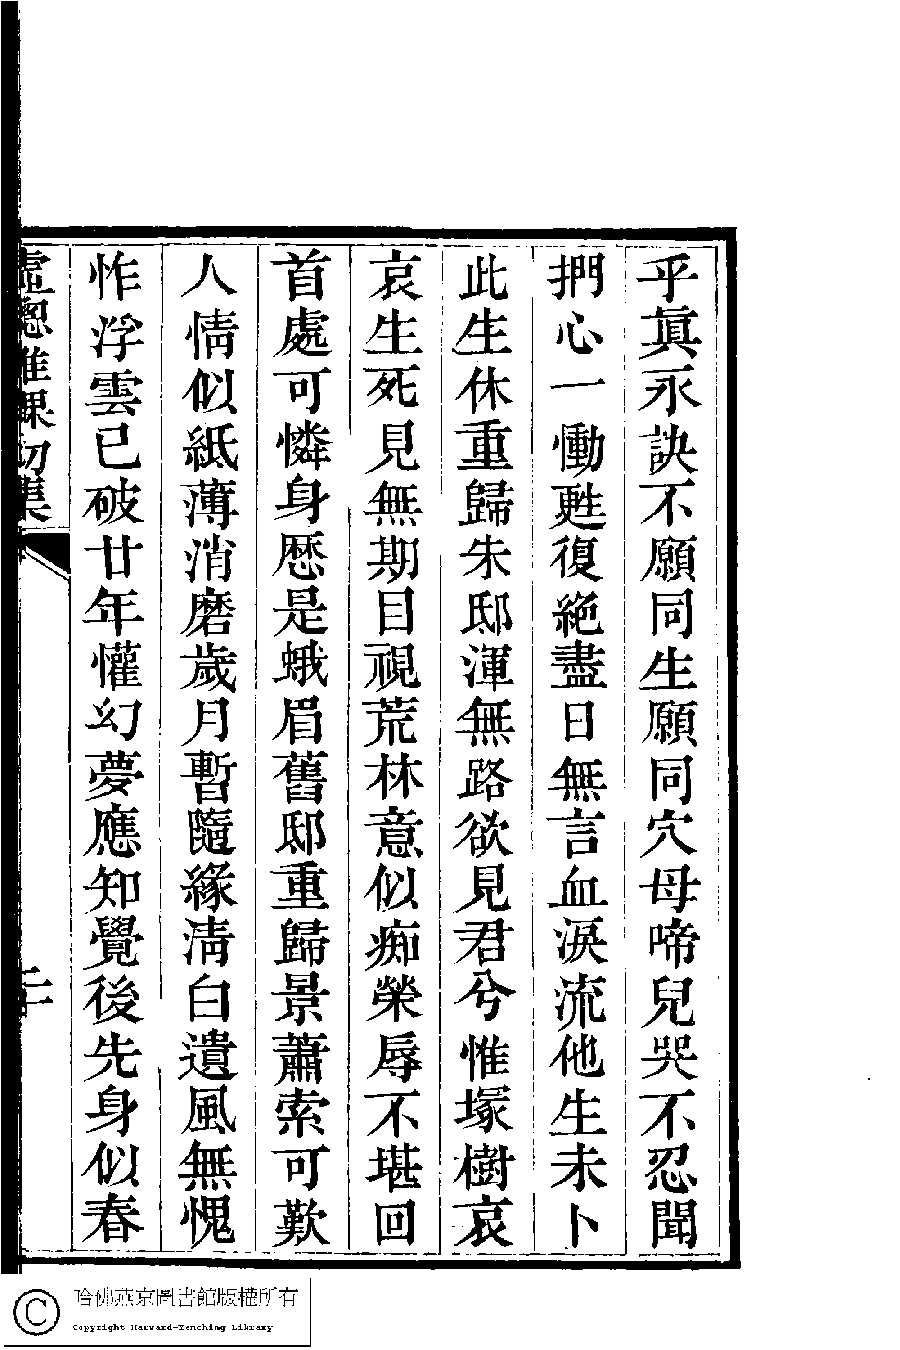 乎眞永訣不願同生願同穴母啼兒哭不忍聞
捫心一慟甦復絕盡日無言血淚流他生未卜
此生休重歸朱邸渾無路欲見君兮惟塚樹哀
哀生死見無期目視荒林意似痴榮辱不堪回
首處可憐身歷是蛾眉舊邸重歸景蕭索可歎
人情似紙薄消磨歲月暫隨緣淸白遺風無愧
怍浮雲已破廿年懽幻夢應知覺後先身似春
虛窗雅課初集
二十
哈佛燕京圖書館版權所有
Copyright Harvard-Yenching Library